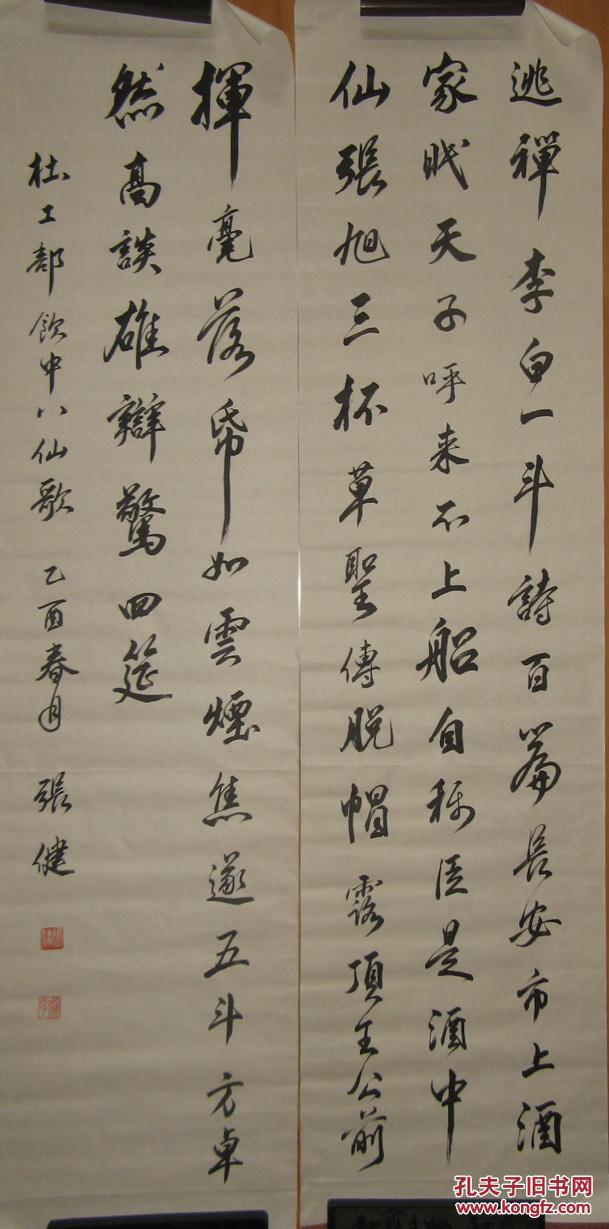 逃禪李白一斗詩百篇長安市上酒
家眠天子呼来不上船自称臣是酒中
仙張旭三杯草聖傳脱帽露頂王公前
揮毫落帋如雲煙焦遂五斗方卓
然高談雄辯驚四筵
杜工部飲中八仙歌 乙酉春月 張健
孔夫子旧书网
www.kongfz.com